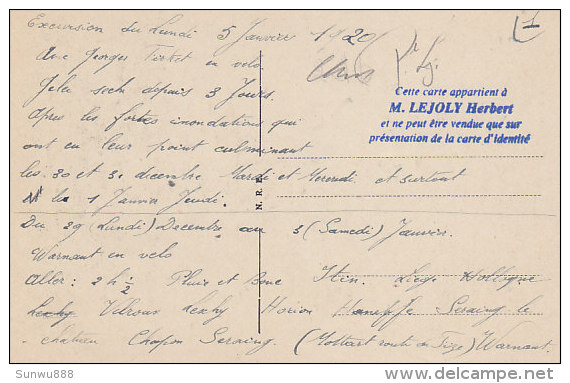 Excursion du Lundi 5 Janvier 1920
Avec Georges en velo.
Gelée sech depuis 3 Jours.
Apres les fortes inondations qui
ont eu leur point culminant
les 30 et 31 decembre Mardi et Mercredi et surtout
le 1 Janvier Jeudi.
Du 29 (Lundi) Decembre au 3 (Samedi) Janvier.
Warnant en velo
Aller: 2 h ½ Pluie et Boue Itin. Liege Hollogne
Velroux Lexhy Horion Haneffe Seraing le
chateau Chapon Seraing. (Mottart route en Tige) Warnant.
L 1
Cette carte appartient à
M. LEJOLY Herbert
et ne peut être vendue que sur
présentation de la carte d'identité
N. R. B.
Sunwu888
delcampe.net